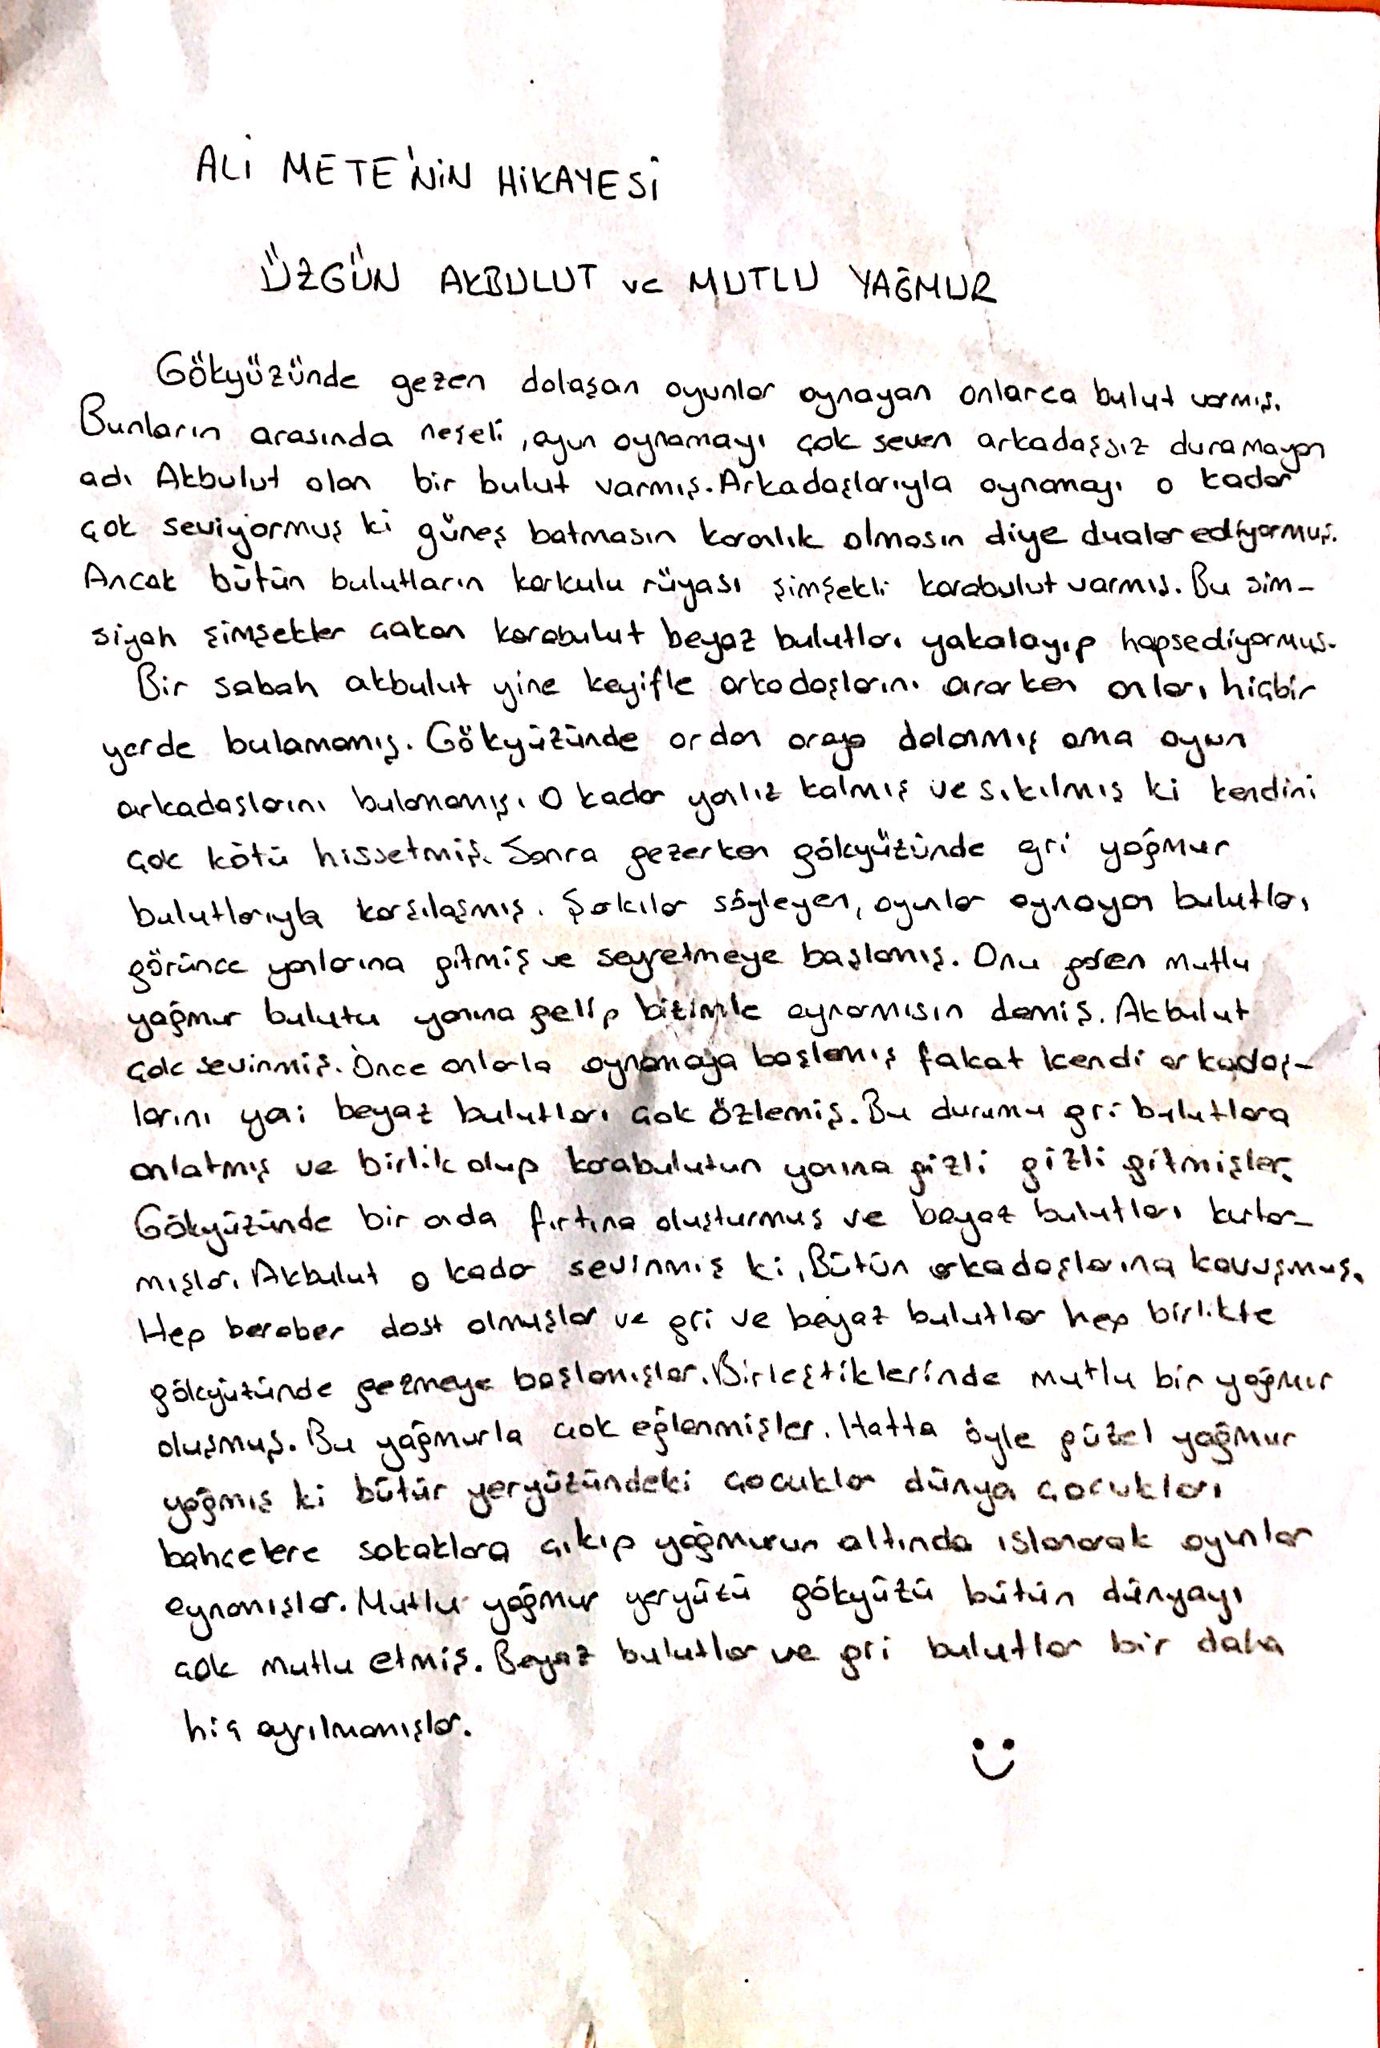 ALİ METE'NİN HİKAYESİ
ÜZGÜN AKBULUT ve MUTLU YAĞMUR
Gökyüzünde gezen dolaşan oyunlar oynayan onlarca bulut varmış.
Bunların arasında neşeli, oyun oynamayı çok seven arkadaşsız duramayan
adı Akbulut olan bir bulut varmış. Arkadaşlarıyla oynamayı o kadar
çok seviyormuş ki güneş batmasın karanlık olmasın diye dualar ediyormuş.
Ancak bütün bulutların korkulu rüyası şimşekli karabulut varmış. Bu sim-
siyah şimşekler çakan karabulut beyaz bulutları yakalayıp hapsediyormuş.
Bir sabah akbulut yine keyifle arkadaşlarını ararken onları hiçbir
yerde bulamamış. Gökyüzünde ordan oraya dolanmış ama oyun
arkadaşlarını bulamamış. O kadar yanlız kalmış ve sıkılmış ki kendini
çok kötü hissetmiş. Sonra gezerken gökyüzünde gri yağmur
bulutlarıyla karşılaşmış. Şarkılar söyleyen, oyunlar oynayan bulutları
görünce yanlarına gitmiş ve seyretmeye başlamış. Onu gören mutlu
yağmur bulutu yanına gelip bizimle oynarmısın demiş. Akbulut
çok sevinmiş. Önce onlarla oynamaya başlamış fakat kendi arkadaş-
larını yani beyaz bulutları çok özlemiş. Bu durumu gri bulutlara
anlatmış ve birlik olup karabulutun yanına gizli gizli gitmişler.
Gökyüzünde bir anda fırtına oluşturmuş ve beyaz bulutları kurtar-
mışlar. Akbulut o kadar sevinmiş ki, Bütün arkadaşlarına kavuşmuş.
Hep beraber dost olmuşlar ve gri ve beyaz bulutlar hep birlikte
gökyüzünde gezmeye başlamışlar. Birleştiklerinde mutlu bir yağmur
oluşmuş. Bu yağmurla çok eğlenmişler. Hatta öyle güzel yağmur
yağmış ki bütün yeryüzündeki çocuklar dünya çocukları
bahçelere sokaklara çıkıp yağmurun altında ıslanarak oyunlar
oynamışlar. Mutlu yağmur yeryüzü gökyüzü bütün dünyayı
çok mutlu etmiş. Beyaz bulutlar ve gri bulutlar bir daha
hiç ayrılmamışlar.